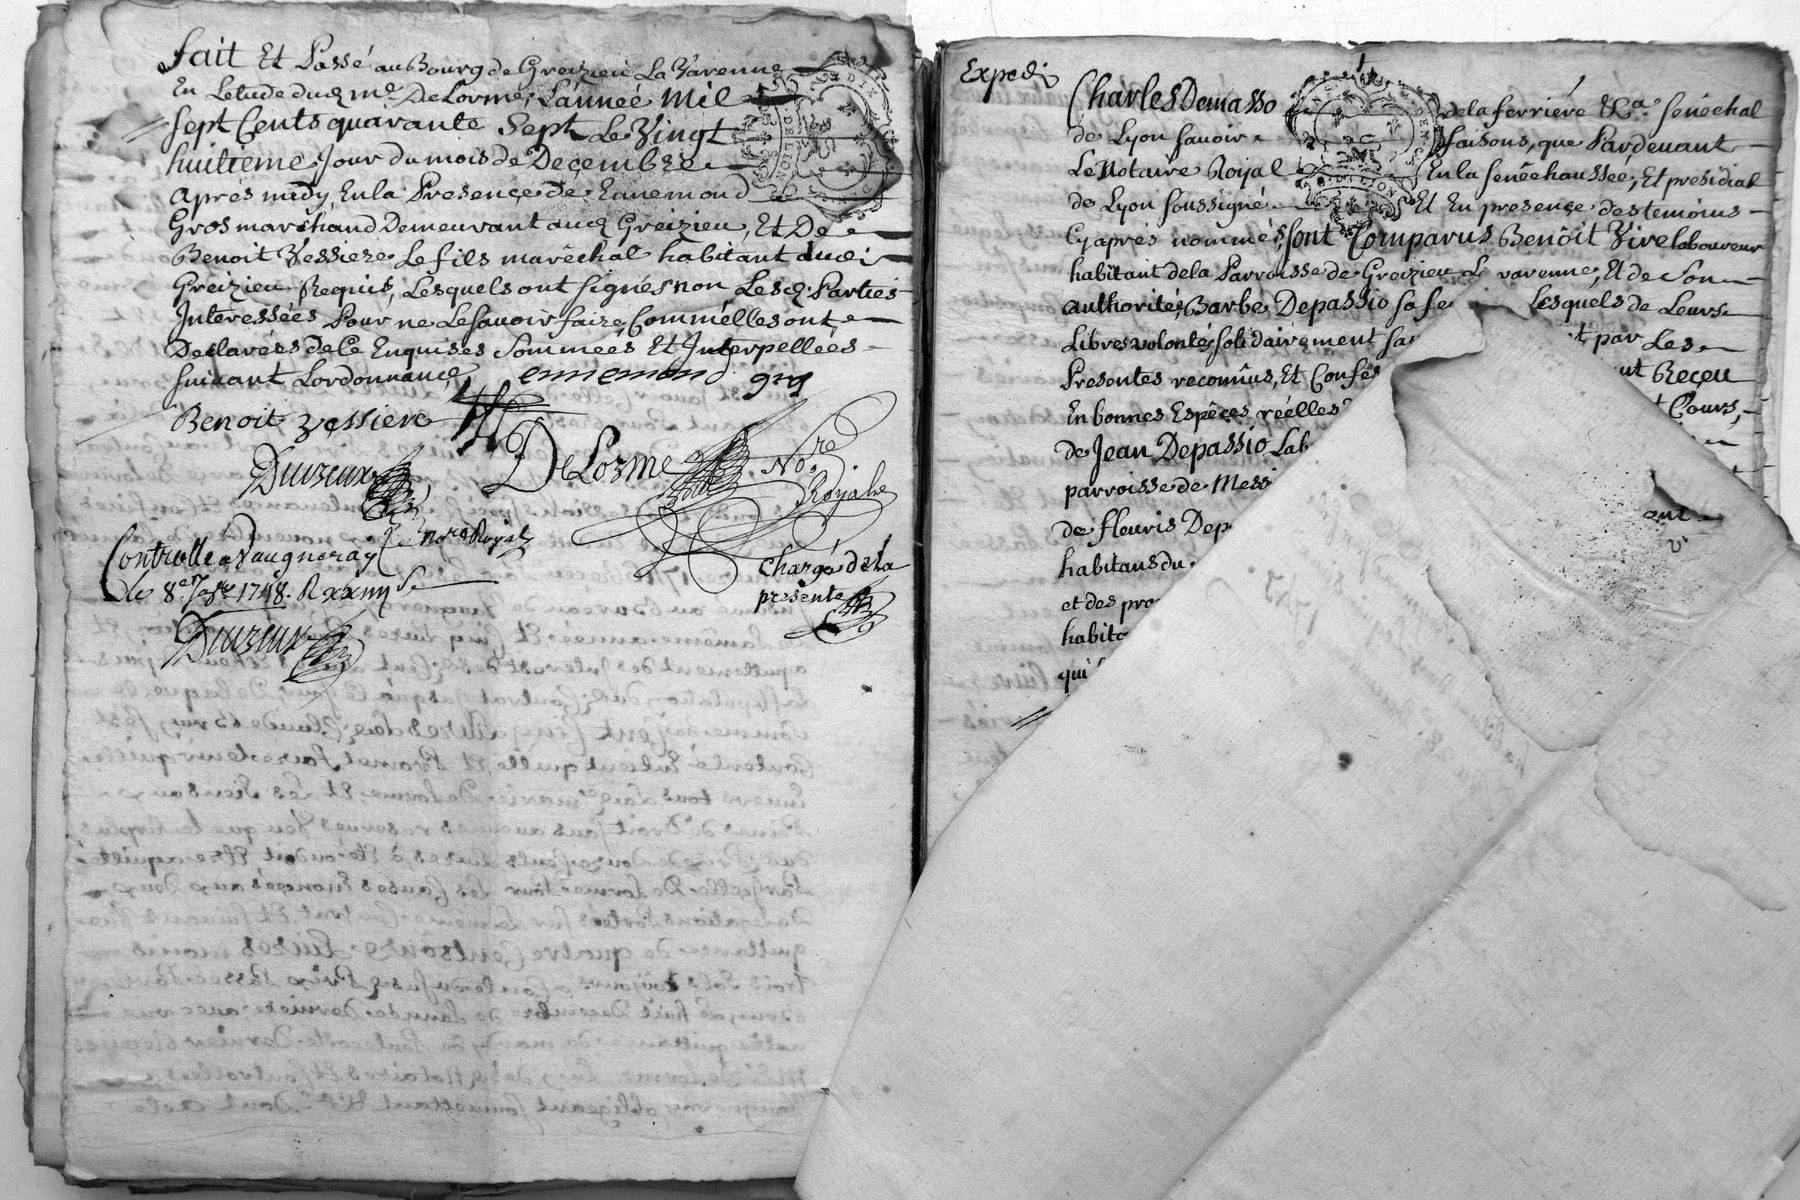 fait Et Passé au Bourg de Greizieu La Varenne
En Letude dud. me. DeLorme, L'année Mil
sept Cents quarante Sept Le Vingt
huitieme Jour du mois de Decembre
apres midy, En la Presence de Ennemond
Gros marchand Demeurant aud. Greizieu, Et De
Benoit Vessiere Le fils maréchal habitant dudi
Greizieu Requis, Lesquels ont signés non Lesd. Parties
Interessées Pour ne Le savoir faire Comm'elles ont
Declarées de Ce Enquises Sommées Et Interpellées
suivant Lordonnance
ennemond gros
Benoit vessiere
DeLorme No.re Royal
Duvreux
No.re Royal
Controlle a Vaugneray
le 8e. 1748. R xxiiij s.
Chargé de la
presente
Duvreux
Expedi
Charles Demasso de la ferriére &a. senéchal
de Lyon savoir faisons, que Pardevant
Le Notaire Royal En la senêchaussée, Et presidial
de Lyon soussigné Et En presence des témoins
Cy aprés nommés, sont Comparus Benoît Vire laboureur
habitant de la Parroisse de Greizieu Le varenne, Et de Son
authorité, Barbe Depassio sa fe Lesquels de Leurs
Libres volontés solidairement sa t par Les
Presentes reconnus, Et Confes nt Reçeu
En bonnes Espêces réelles t Cours,
de Jean Depassio Lab
parroisse de Messi
de fleuris Dep ant
habitans du
et des pro
habita
qui